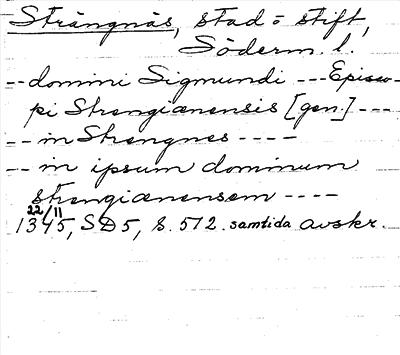 Strängnäs, stad o stift,
Söderm. l.
-- domini Sigmundi --- Episco-
pi Strengianensis [gen.] ---
-- in Strengnes ----
-- in ipsum dominum
strengianensem ----
22/11
1345, SD5, s. 572. samtida avskr.